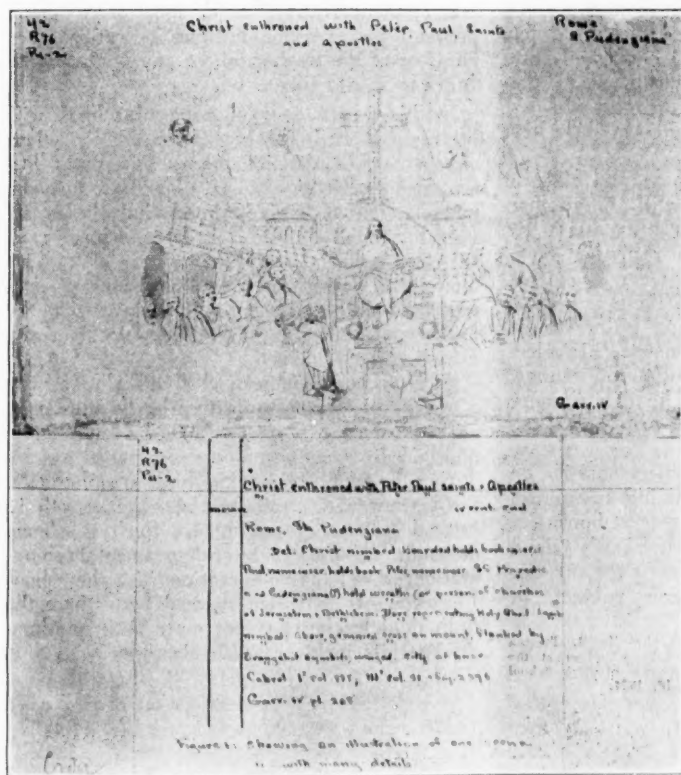 42
R76
Pu-2
Christ enthroned with Peter, Paul, Saints
and apostles
Rome
S. Pudenziana
Garr. IV
42
R76
Pu-2
Christ enthroned with Peter Paul saints + Apostles
IV cent. end
Rome, Sta Pudenziana
Det. Christ nimbed bearded holds book
Paul, holds book Peter, SS Praxedis
and Pudenziana(?) hold wreaths (or person. of churches
of Jerusalem + Bethlehem. Dove representing Holy Ghost lamb
nimbed. Above, gemmed cross on mount, flanked by
Evangelist symbols, winged. city at base
Cabrol
Garr. IV pl. 208
Figure 1: Showing an illustration of one scene
with many details